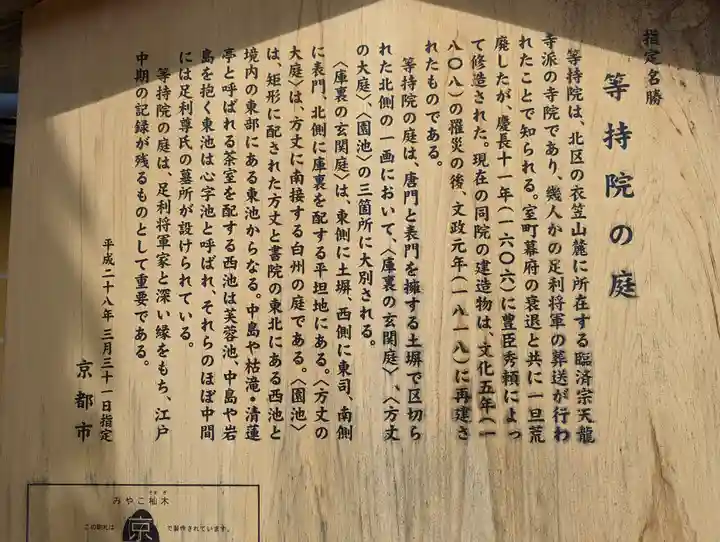 指定名勝
等持院の庭
等持院は、北区の衣笠山麓に所在する臨済宗天龍
寺派の寺院であり、幾人かの足利将軍の葬送が行わ
れたことで知られる。室町幕府の衰退と共に一旦荒
廃したが、慶長十一年(一六〇六)に豊臣秀頼によっ
て修造された。現在の同院の建造物は、文化五年(一
八〇八)の罹災の後、文政元年(一八一八)に再建さ
れたものである。
等持院の庭は、唐門と表門を擁する土塀で区切ら
れた北側の一画において、〈庫裏の玄関庭〉、〈方丈
の大庭〉、〈園池〉の三箇所に大別される。
〈庫裏の玄関庭〉は、東側に土塀、西側に東司、南側
に表門、北側に庫裏を配する平坦地にある。〈方丈の
大庭〉は、方丈に南接する白州の庭である。〈園池〉
は、矩形に配された方丈と書院の東北にある西池と
境内の東部にある東池からなる。中島や枯滝・清蓮
亭と呼ばれる茶室を配する西池は芙蓉池、中島や岩
島を抱く東池は心字池と呼ばれ、それらのほぼ中間
には足利尊氏の墓所が設けられている。
等持院の庭は、足利将軍家と深い縁をもち、江戸
中期の記録が残るものとして重要である。
平成二十八年 三月三十一日指定
京都市
みやこ杣木
そまぎ
この駒札は
京
で製作されています。